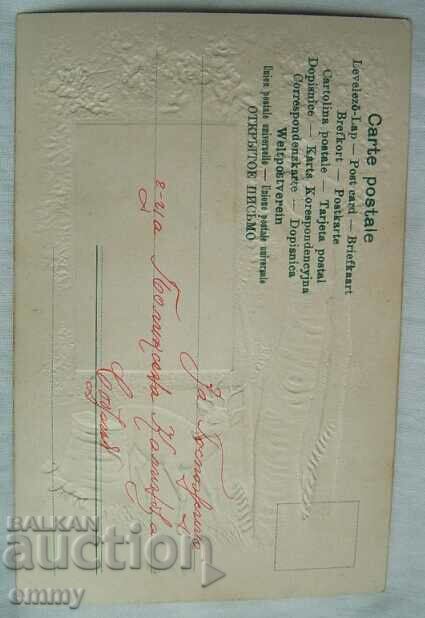 Carte postale
Levelező-Lap — Post card — Briefkaart
Brefkort — Postkarte
Cartolina postale — Tarjeta postal
Dopisnice — Karta Korespondencyjna
Correspondenzkarte — Dopisnica
Weltpostverein
Union postale universelle — Unione postale universale
ОТКРЫТОЕ ПИСЬМО
За
г-ца
София
BALKAN
auction
emmy